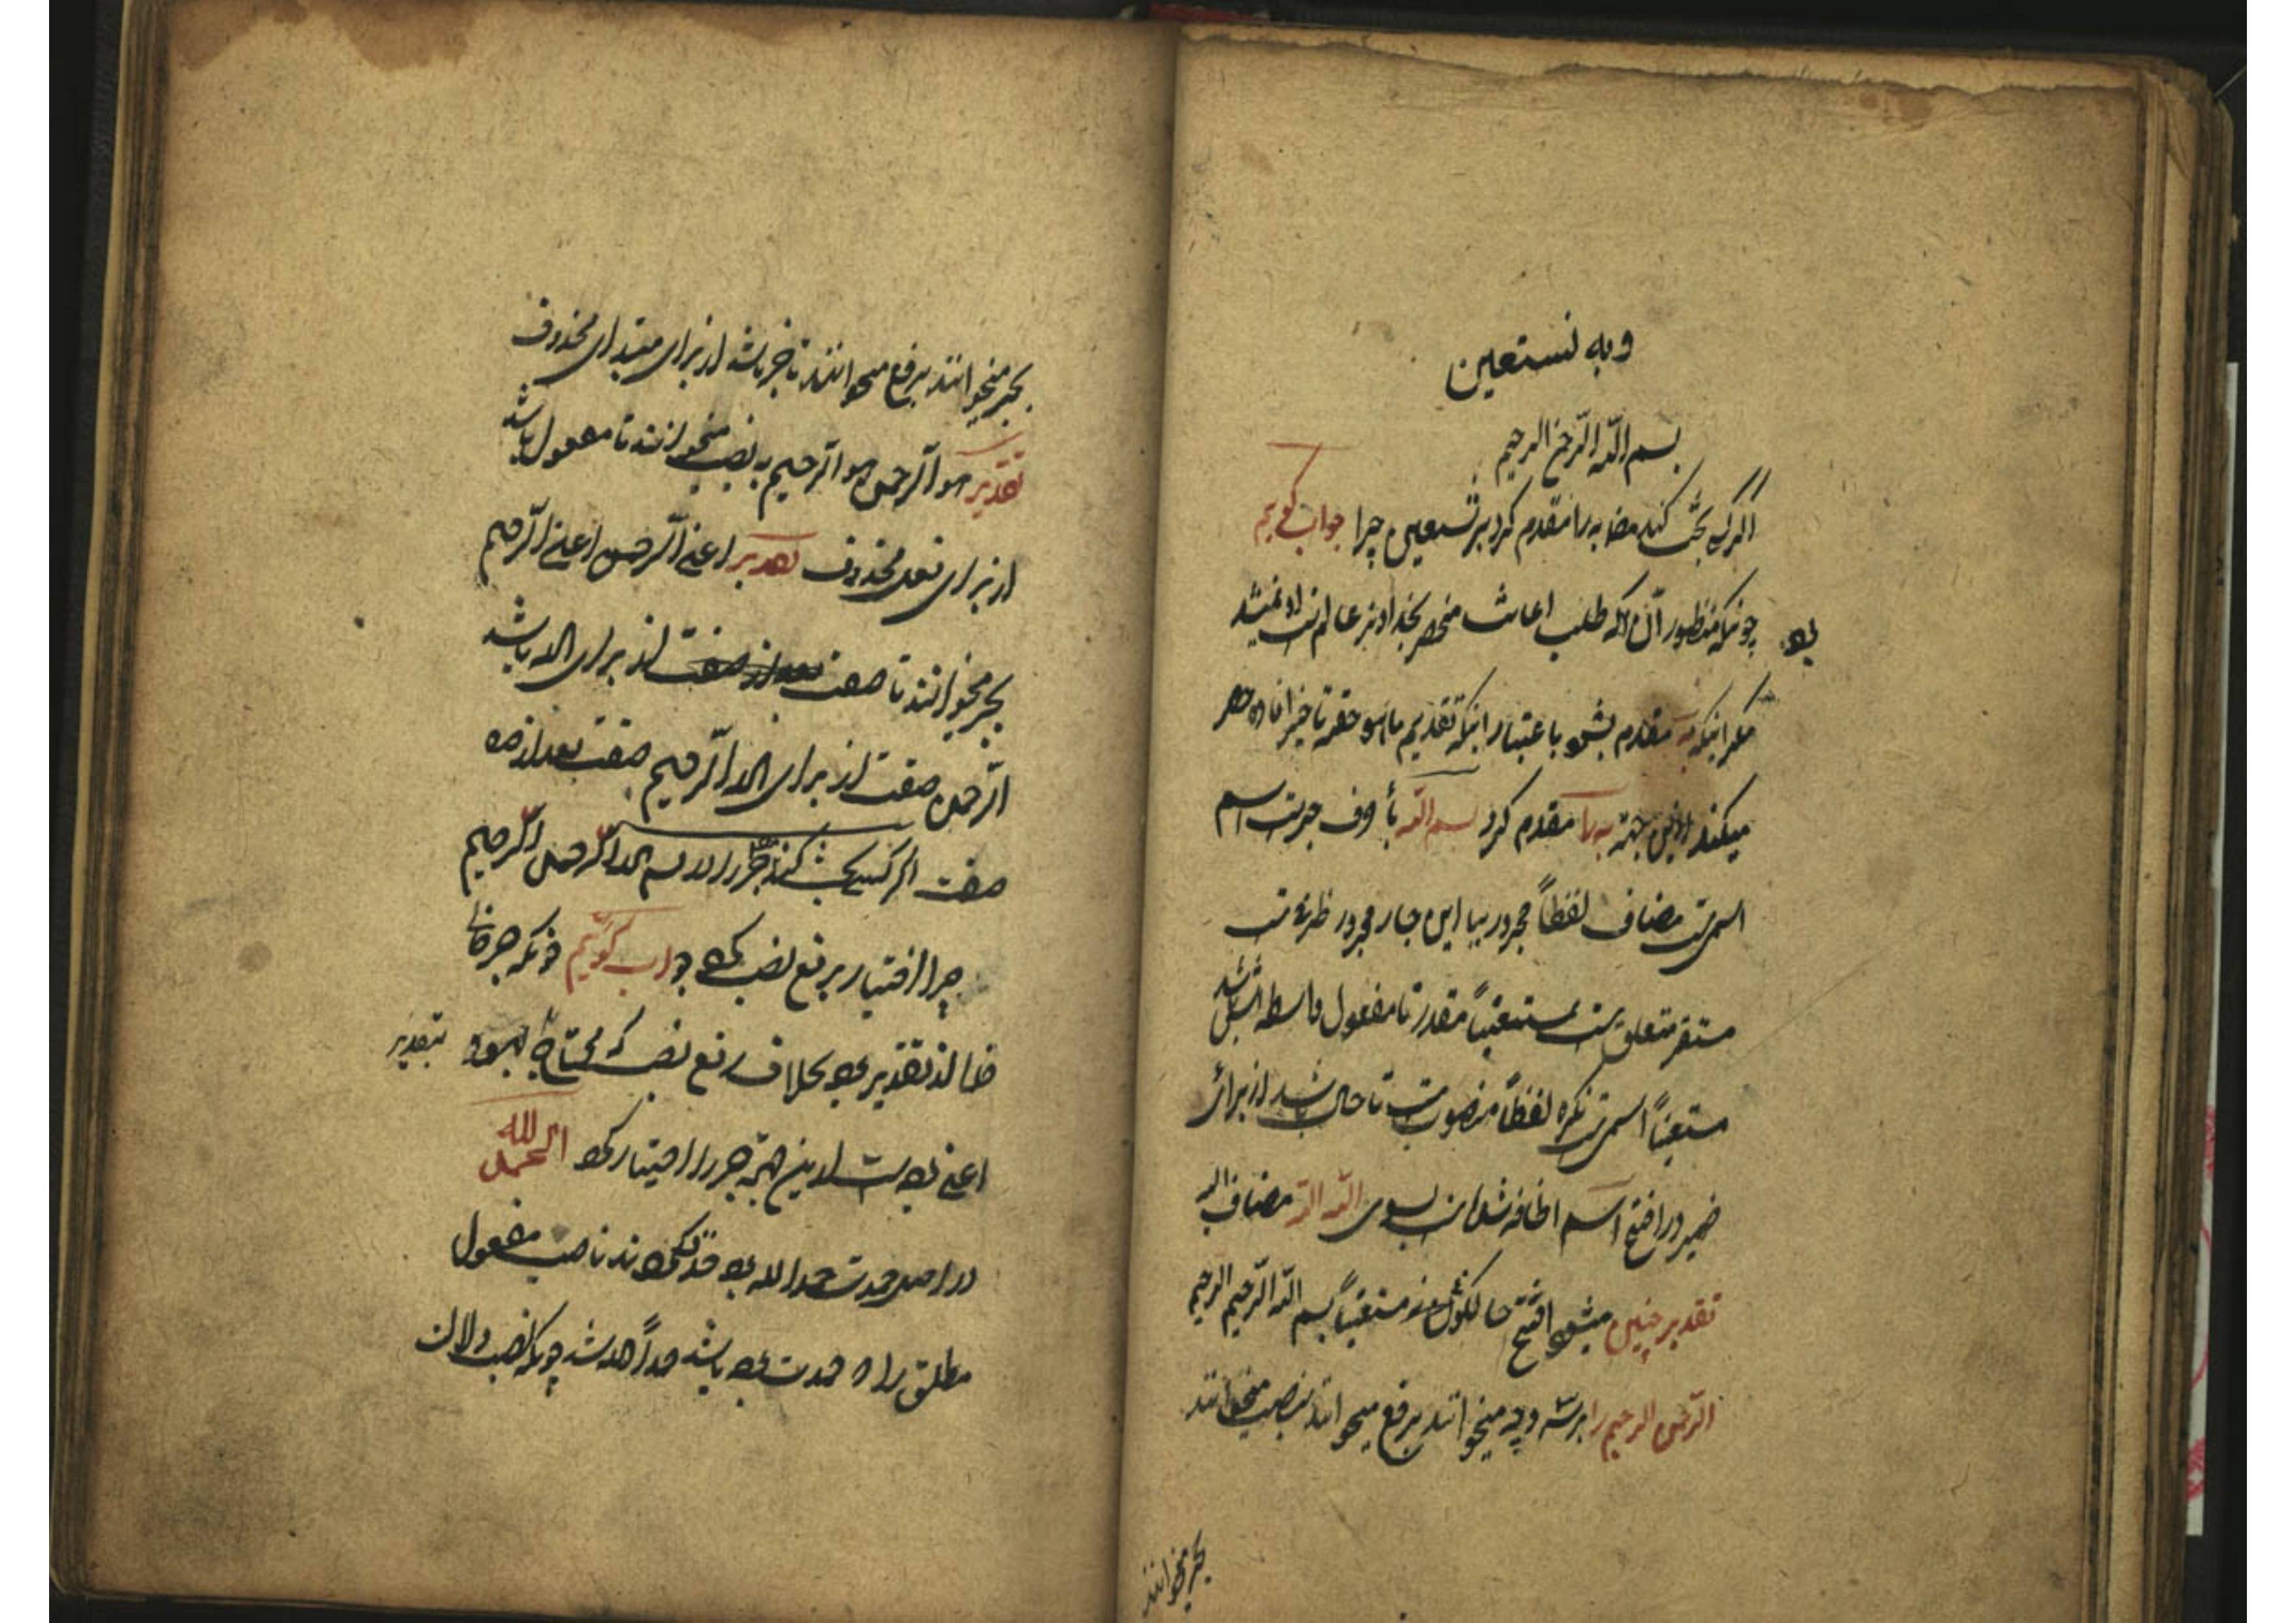 وبه نستعین
بسم الله الرحمن الرحیم
اگر کسی بحث کند مصنف به را مقدم کرد بر نستعین چرا جواب گوییم
چونکه منظور آن بود که طلب اعانت منحصر بخداوند عالم است و نمیشد
مگر اینکه به مقدم بشود باعتبار اینکه تقدیم ماهو حقه تاخیر افاده حصر
میکند ازین جهة به را مقدم کرد بسم الله با حرف جرست اسم
اسمی ست مضاف لفظاً مجرور ببا این جار مجرور ظرف ست
مستقر متعلق ست بمستعیناً مقدر تا مفعول واسطه اش باشد
مستعیناً اسمی ست نکره لفظاً منصوب ست تا حال باشد از برای
ضمیر در افتتح اسم اضافه شده است بسوی الله الله مضاف الیه
تقدیر چنین میشود افتتح حالکونی مستعیناً بسم الله الرحمن الرحیم
الرحمن الرحیم را بر سه وجه میخوانند برفع میخوانند بنصب میخوانند
بجر میخوانند
بجر میخوانند برفع میخوانند تا خبر باشد از برای مبتدای محذوف
تقدیر هو الرحمن هو الرحیم به نصب میخوانند تا مفعول باشد
از برای فعل محذوف تقدیر اعنی الرحمن اعنی الرحیم
بجر میخوانند تا صفت از برای الله باشد
الرحمن صفت از برای الله الرحیم صفت بعد از
صفت اگر کسی بحث کند جر را در بسم الله الرحمن الرحیم
چرا اختیار برفع نصب کرد جواب گوییم چونکه جر
خالی از تقدیر بود بخلاف رفع نصب که محتاج بود بتقدیر
اعنی بوده است ازین جهة جر را اختیار کرد الحمد لله
در اصل حمدت حمدا لله بود مفعول
مطلق را حمدت بود باشد حمداً لله شد چونکه نصب دلالت